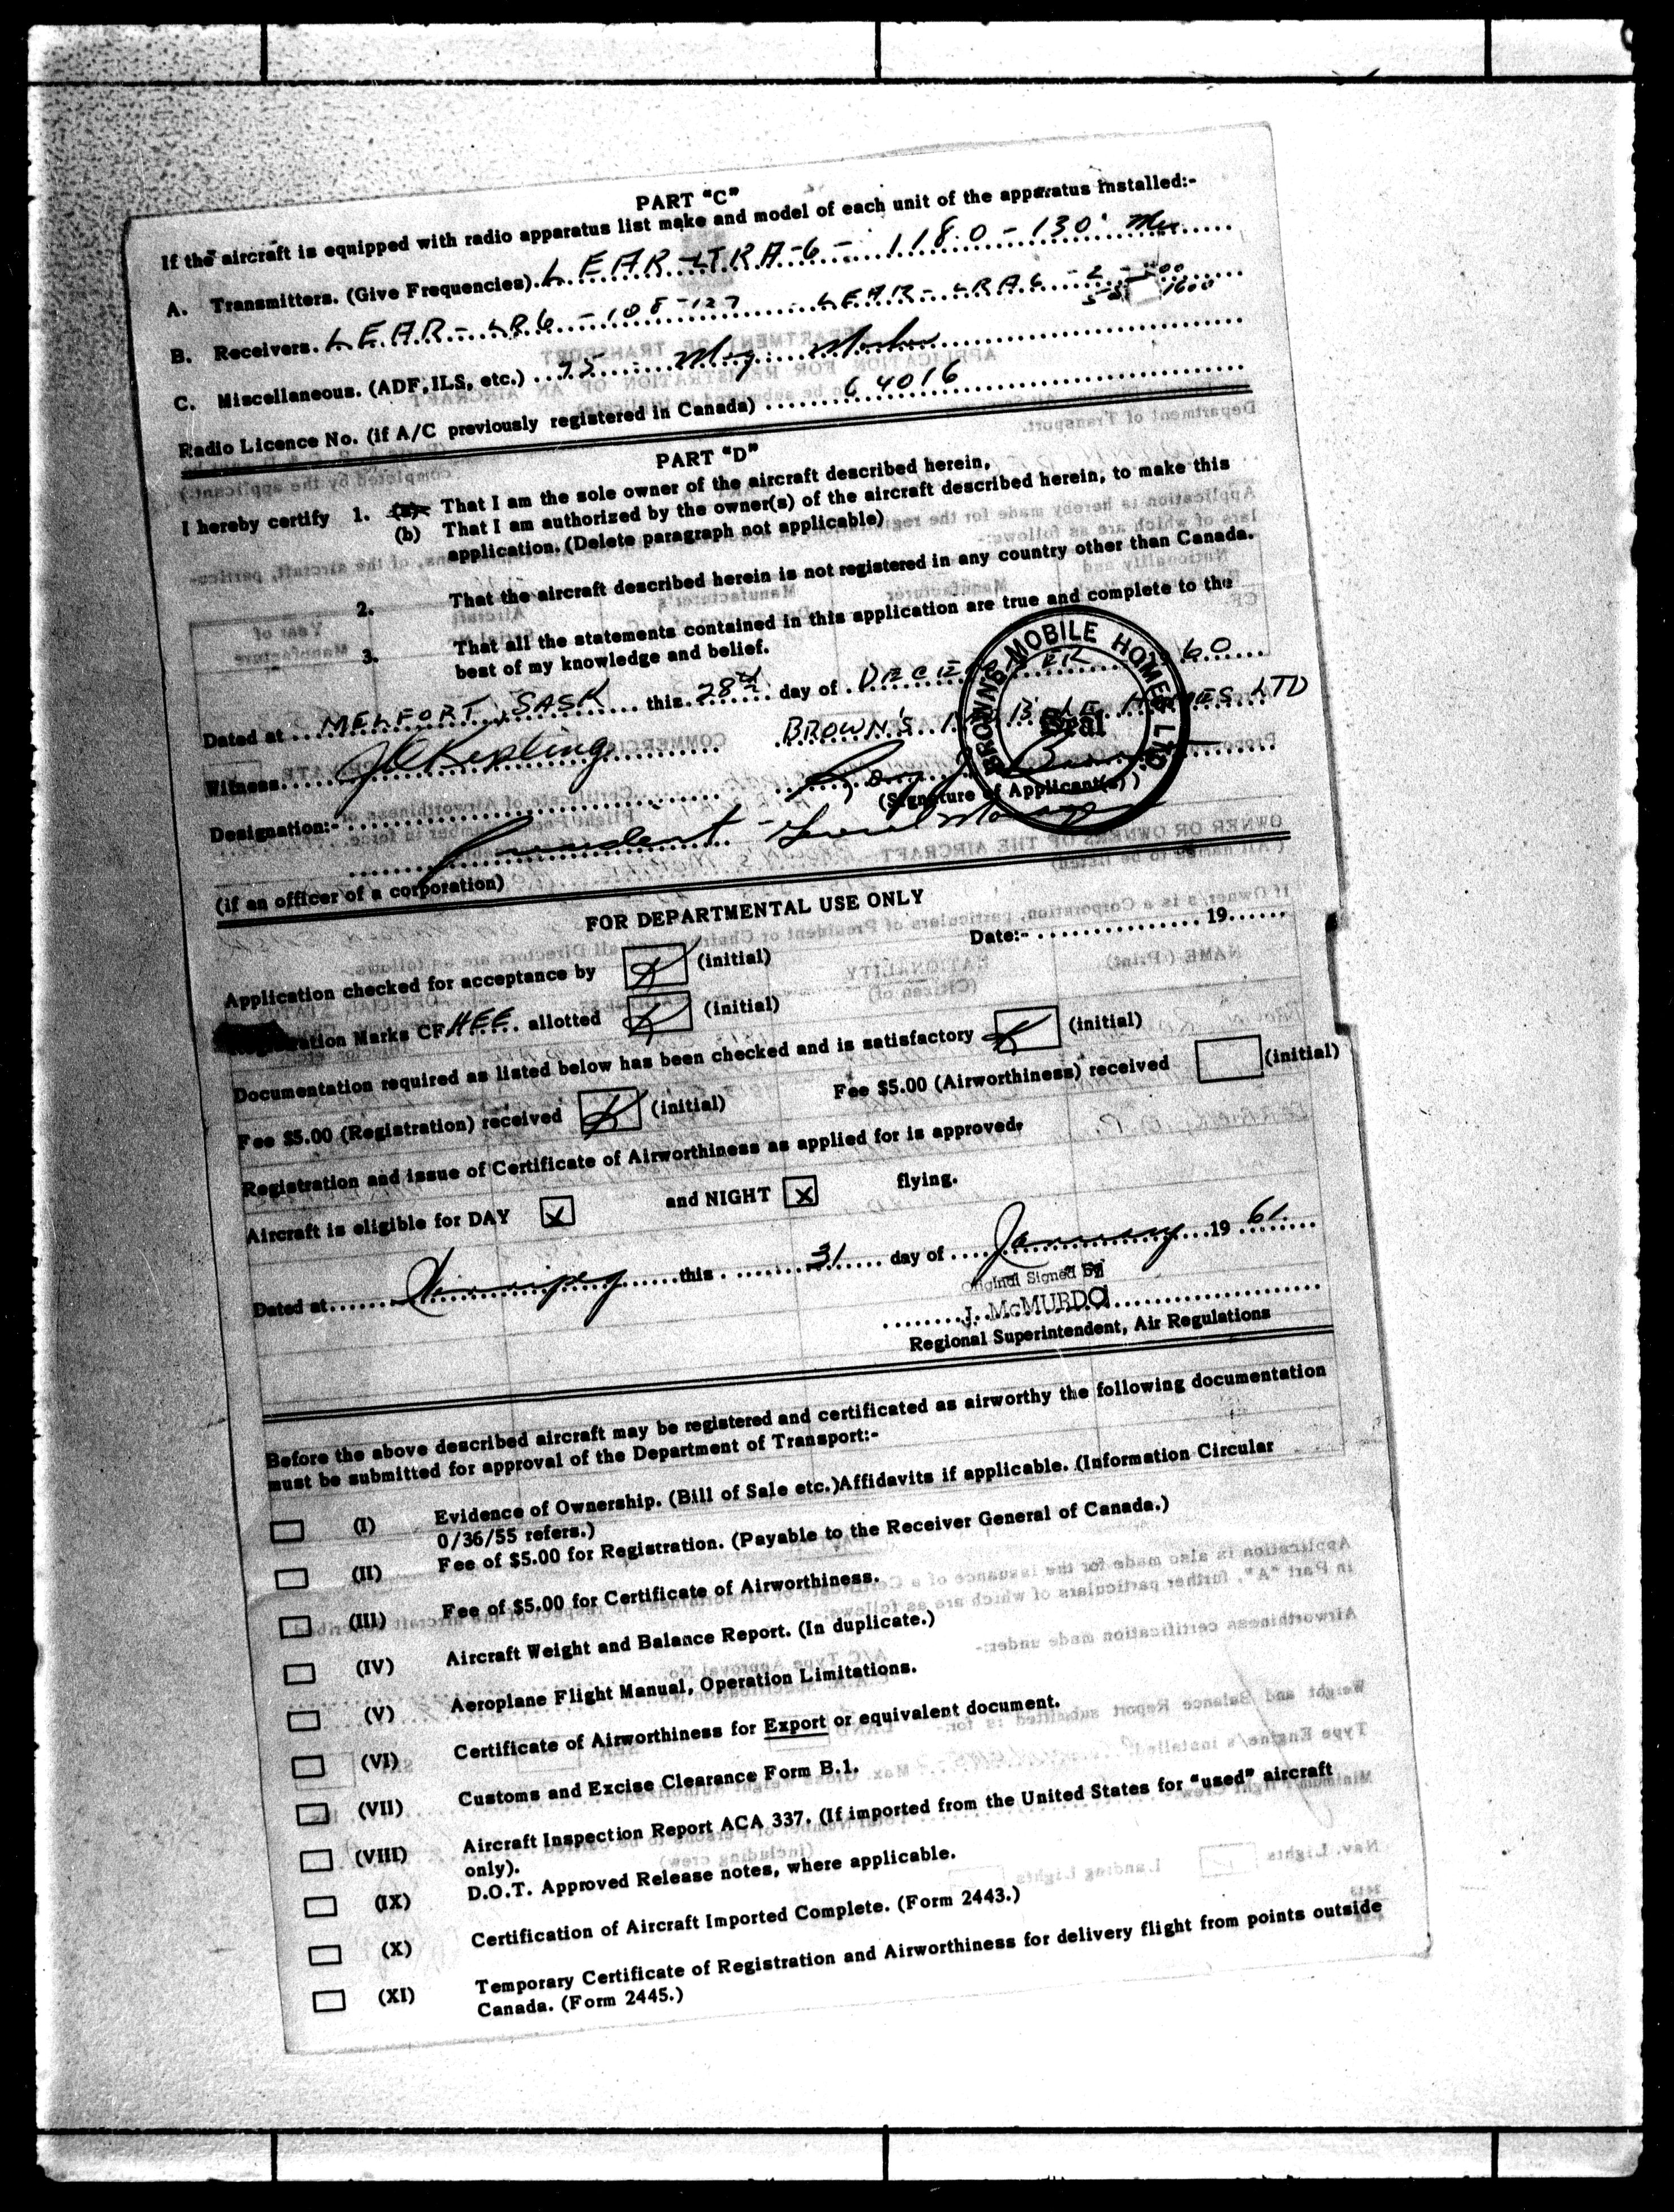 PART "C"
If the aircraft is equipped with radio apparatus list make and model of each unit of the apparatus installed:-
A. Transmitters. (Give Frequencies). LEAR LTRA-6 - 118.0 - 130.
B. Receivers. LEAR - LR6 - 108-127 - LEAR - LRA6
C. Miscellaneous. (ADF, ILS, etc.) 75
Radio Licence No. (if A/C previously registered in Canada) 64016
PART "D"
I hereby certify 1. (a) That I am the sole owner of the aircraft described herein,
(b) That I am authorized by the owner(s) of the aircraft described herein, to make this
application. (Delete paragraph not applicable)
2. That the aircraft described herein is not registered in any country other than Canada.
3. That all the statements contained in this application are true and complete to the
best of my knowledge and belief.
Dated at MELFORT, SASK this 28th day of DECEMBER 60
BROWN'S MOBILE HOMES LTD
BROWN'S MOBILE HOMES LTD.
Seal
Witness
(Signature of Applicant(s))
Designation:- President - General Manager
(if an officer of a corporation)
FOR DEPARTMENTAL USE ONLY
Date:- 19
Application checked for acceptance by (initial)
Registration Marks CF HEE allotted (initial)
Documentation required as listed below has been checked and is satisfactory (initial)
Fee $5.00 (Registration) received (initial) Fee $5.00 (Airworthiness) received (initial)
Registration and issue of Certificate of Airworthiness as applied for is approved.
Aircraft is eligible for DAY X and NIGHT X flying.
Dated at Winnipeg this 31 day of January 19 61
Original Signed By
J. McMURDO
Regional Superintendent, Air Regulations
Before the above described aircraft may be registered and certificated as airworthy the following documentation
must be submitted for approval of the Department of Transport:-
(I) Evidence of Ownership. (Bill of Sale etc.) Affidavits if applicable. (Information Circular
0/36/55 refers.)
(II) Fee of $5.00 for Registration. (Payable to the Receiver General of Canada.)
(III) Fee of $5.00 for Certificate of Airworthiness.
(IV) Aircraft Weight and Balance Report. (In duplicate.)
(V) Aeroplane Flight Manual, Operation Limitations.
(VI) Certificate of Airworthiness for Export or equivalent document.
(VII) Customs and Excise Clearance Form B.1.
(VIII) Aircraft Inspection Report ACA 337. (If imported from the United States for "used" aircraft
only).
(IX) D.O.T. Approved Release notes, where applicable.
(X) Certification of Aircraft Imported Complete. (Form 2443.)
(XI) Temporary Certificate of Registration and Airworthiness for delivery flight from points outside
Canada. (Form 2445.)